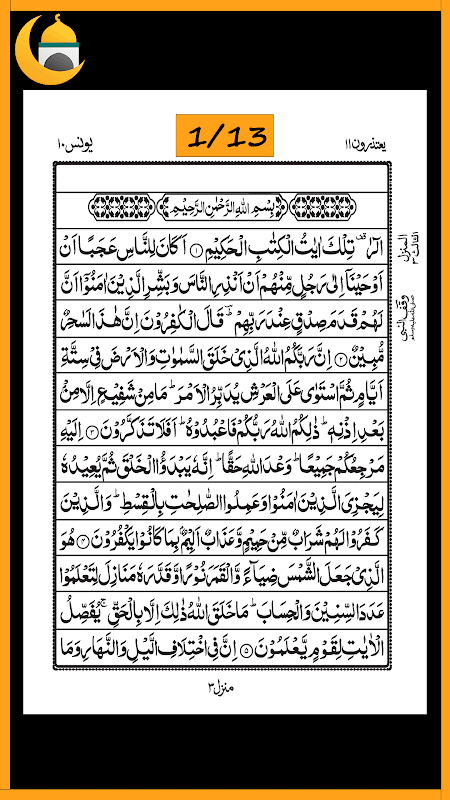 1/13
یعتذرون ۱۱
یونس ۱۰
بِسْمِ اللهِ الرَّحْمٰنِ الرَّحِيْمِ
الٓرٰ ۫ تِلْكَ اٰيٰتُ الْكِتٰبِ الْحَكِيْمِ ۝۱ اَكَانَ لِلنَّاسِ عَجَبًا اَنْ
اَوْحَيْنَاۤ اِلٰى رَجُلٍ مِّنْهُمْ اَنْ اَنْذِرِ النَّاسَ وَبَشِّرِ الَّذِيْنَ اٰمَنُوْۤا اَنَّ
لَهُمْ قَدَمَ صِدْقٍ عِنْدَ رَبِّهِمْ ؕ قَالَ الْكٰفِرُوْنَ اِنَّ هٰذَا لَسٰحِرٌ
مُّبِيْنٌ ۝۲ اِنَّ رَبَّكُمُ اللهُ الَّذِيْ خَلَقَ السَّمٰوٰتِ وَالْاَرْضَ فِيْ سِتَّةِ
اَيَّامٍ ثُمَّ اسْتَوٰى عَلَى الْعَرْشِ يُدَبِّرُ الْاَمْرَ ؕ مَا مِنْ شَفِيْعٍ اِلَّا مِنْۢ
بَعْدِ اِذْنِهٖ ؕ ذٰلِكُمُ اللهُ رَبُّكُمْ فَاعْبُدُوْهُ ؕ اَفَلَا تَذَكَّرُوْنَ ۝۳ اِلَيْهِ
مَرْجِعُكُمْ جَمِيْعًا ؕ وَعْدَ اللهِ حَقًّا ؕ اِنَّهٗ يَبْدَؤُا الْخَلْقَ ثُمَّ يُعِيْدُهٗ
لِيَجْزِيَ الَّذِيْنَ اٰمَنُوْا وَعَمِلُوا الصّٰلِحٰتِ بِالْقِسْطِ ؕ وَالَّذِيْنَ
كَفَرُوْا لَهُمْ شَرَابٌ مِّنْ حَمِيْمٍ وَّعَذَابٌ اَلِيْمٌۢ بِمَا كَانُوْا يَكْفُرُوْنَ ۝۴ هُوَ
الَّذِيْ جَعَلَ الشَّمْسَ ضِيَآءً وَّالْقَمَرَ نُوْرًا وَّقَدَّرَهٗ مَنَازِلَ لِتَعْلَمُوْا
عَدَدَ السِّنِيْنَ وَالْحِسَابَ ؕ مَا خَلَقَ اللهُ ذٰلِكَ اِلَّا بِالْحَقِّ ۚ يُفَصِّلُ
الْاٰيٰتِ لِقَوْمٍ يَّعْلَمُوْنَ ۝۵ اِنَّ فِي اخْتِلَافِ الَّيْلِ وَالنَّهَارِ وَمَا
المنزل
الثالث ۳
وقف النبی
منزل ۳